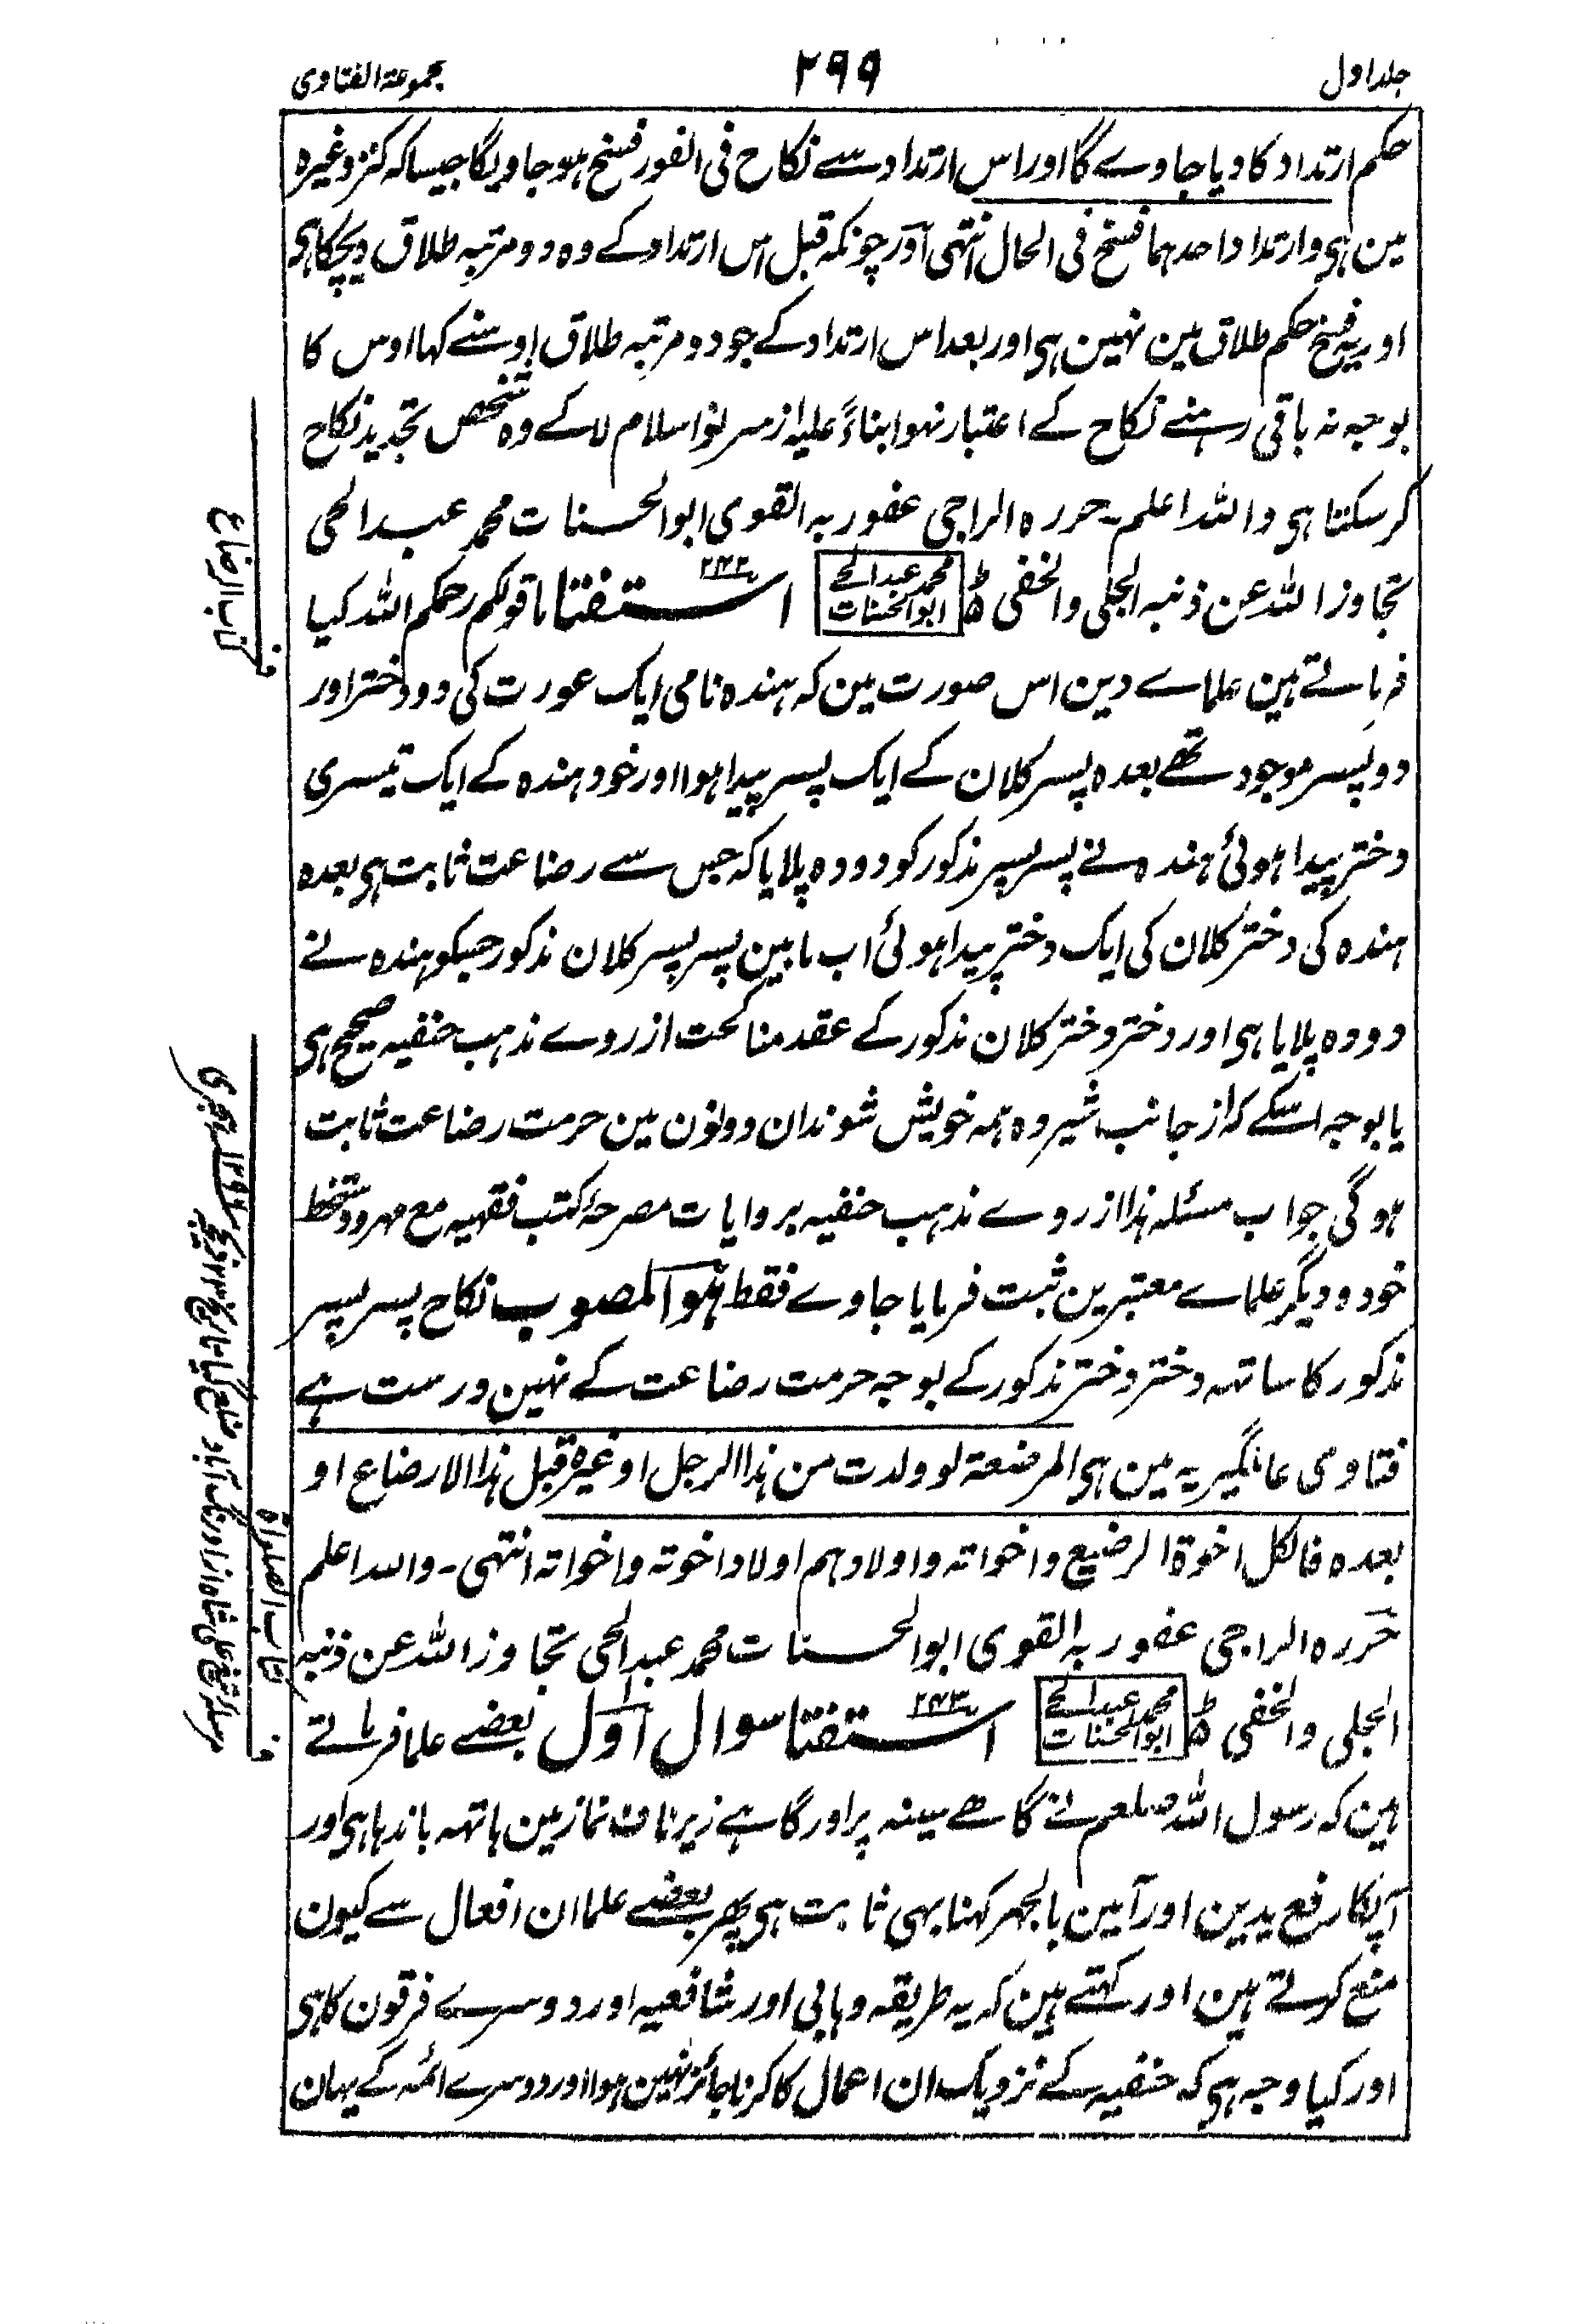 جلد اول
۲۹۹
مجموعۃ الفتاوی
حکم ارتداد کا دیا جاوے گا اور اس ارتداد سے نکاح فی الفور فسخ ہو جاویگا جیسا کہ کنز وغیرہ
مین ہی وارتداد احدہما فسخ فی الحال انتہی اور چونکہ قبل اس ارتداد کے وہ دو مرتبہ طلاق دیچکا ہی
اور یہ فسخ حکم طلاق مین نہین ہی اور بعد اس ارتداد کے جو دو مرتبہ طلاق اوسنے کہا اوس کا
بوجہ نہ باقی رہنے نکاح کے اعتبار نہوا بناءً علیہ از سر نو اسلام لا کے وہ شخص تجدید نکاح
کر سکتا ہی واللہ اعلم۔ حررہ الراجی عفو ربہ القوی ابو الحسنات محمد عبد الحی
تجاوز اللہ عن ذنبہ الجلی والخفی محمد عبد الحی ابو الحسنات استفتا ما قولکم رحمکم اللہ کیا
فرماتے ہین علماے دین اس صورت مین کہ ہندہ نامی ایک عورت کی دو دختر اور
دو پسر موجود تھے بعدہ پسر کلان کے ایک پسر پیدا ہوا اور خود ہندہ کے ایک تیسری
دختر پیدا ہوئی ہندہ نے پسر پسر مذکور کو دودہ پلایا کہ جس سے رضاعت ثابت ہی بعدہ
ہندہ کی دختر کلان کی ایک دختر پیدا ہوئی اب مابین پسر پسر کلان مذکور جسکو ہندہ نے
دودہ پلایا ہی اور دختر دختر کلان مذکور کے عقد مناکحت از روے مذہب حنفیہ صحیح ہی
یا بوجہ اسکے کہ از جانب شیر دہ ہمہ خویش شوند ان دونون مین حرمت رضاعت ثابت
ہوگی جواب مسئلہ ہذا از روے مذہب حنفیہ بروایات مصرحۂ کتب فقہیہ مع مہر و دستخط
خود و دیگر علماے معتبرین ثبت فرمایا جاوے فقط ہو المصوب نکاح پسر پسر
مذکور کا ساتہہ دختر دختر مذکور کے بوجہ حرمت رضاعت کے نہین درست ہے
فتاوی عالمگیریہ مین ہی المرضعۃ لو ولدت من ہذا الرجل او غیرہ قبل ہذا الارضاع او
بعدہ فالکل اخوۃ الرضیع واخواتہ واولادہم اولاد اخوتہ واخواتہ انتہی۔ واللہ اعلم
حررہ الراجی عفو ربہ القوی ابو الحسنات محمد عبد الحی تجاوز اللہ عن ذنبہ
الجلی والخفی محمد عبد الحی ابو الحسنات استفتا سوال اول بعضے علما فرماتے
ہین کہ رسول اللہ صلعم نے گاہے سینہ پر اور گاہے زیر ناف نماز مین ہاتہہ باندہا ہی اور
آپکا رفع یدین اور آمین بالجہر کہنا بہی ثابت ہی پھر بعضے علما ان افعال سے کیون
منع کرتے ہین اور کہتے ہین کہ یہ طریقہ وہابی اور شافعیہ اور دوسرے فرقون کا ہی
اور کیا وجہ ہی کہ حنفیہ کے نزدیک ان اعمال کا کرنا جائز نہین ہوا اور دوسرے ائمہ کے یہان
کتاب الرضاع
کتاب الصلوۃ